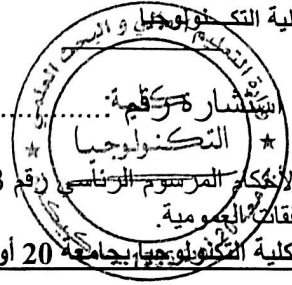 كلية التكنولوجيا
وزارة التعليم العالي و البحث العلمي
استشارة رقم:..............
كلية
التكنولوجيا
لأحكام المرسوم الرئاسي رقم
العمومية.
كلية التكنولوجيا بجامعة 20 أو